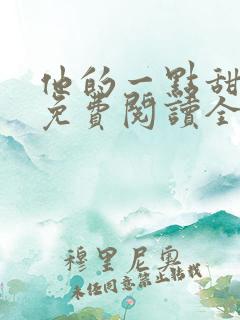 他的一點甜
免費閱讀全
穆里尼奧
未经同意禁止转载